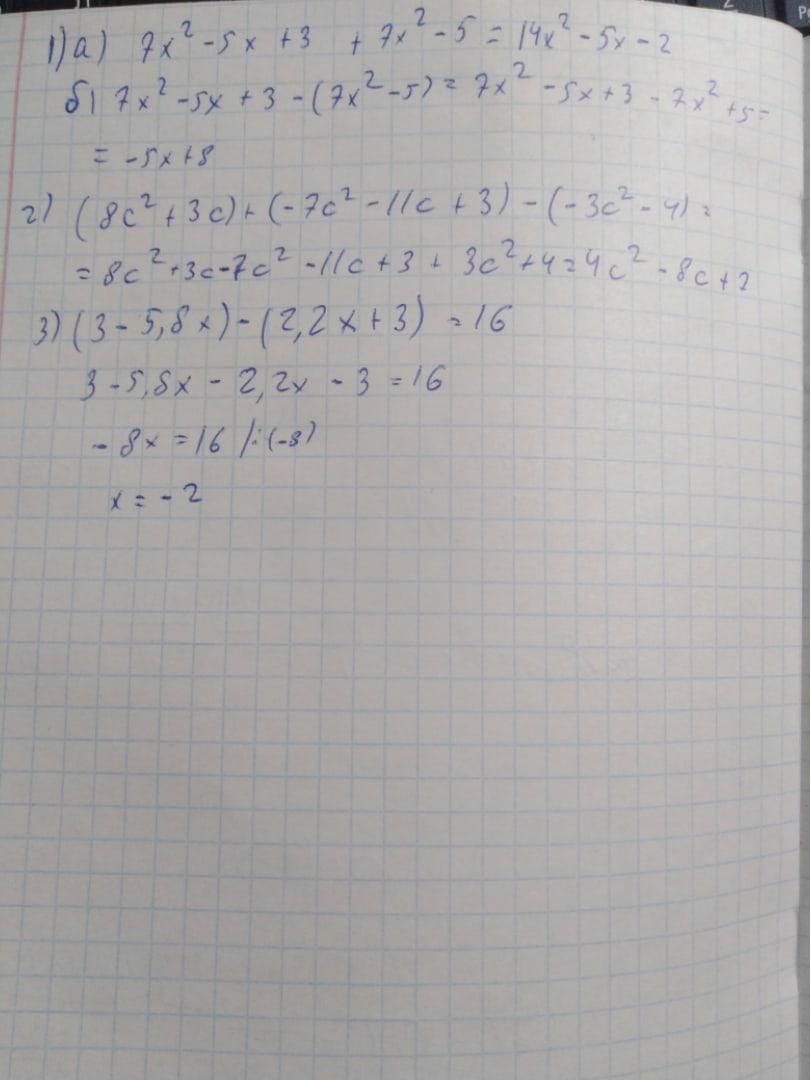 1) а) 7x² - 5x + 3 + 7x² - 5 = 14x² - 5x - 2
б) 7x² - 5x + 3 - (7x² - 5) = 7x² - 5x + 3 - 7x² + 5 =
= -5x + 8
2) (8c² + 3c) + (-7c² - 11c + 3) - (-3c² - 4) =
= 8c² + 3c - 7c² - 11c + 3 + 3c² + 4 = 4c² - 8c + 7
3) (3 - 5,8x) - (2,2x + 3) = 16
3 - 5,8x - 2,2x - 3 = 16
- 8x = 16 /:(-8)
x = - 2